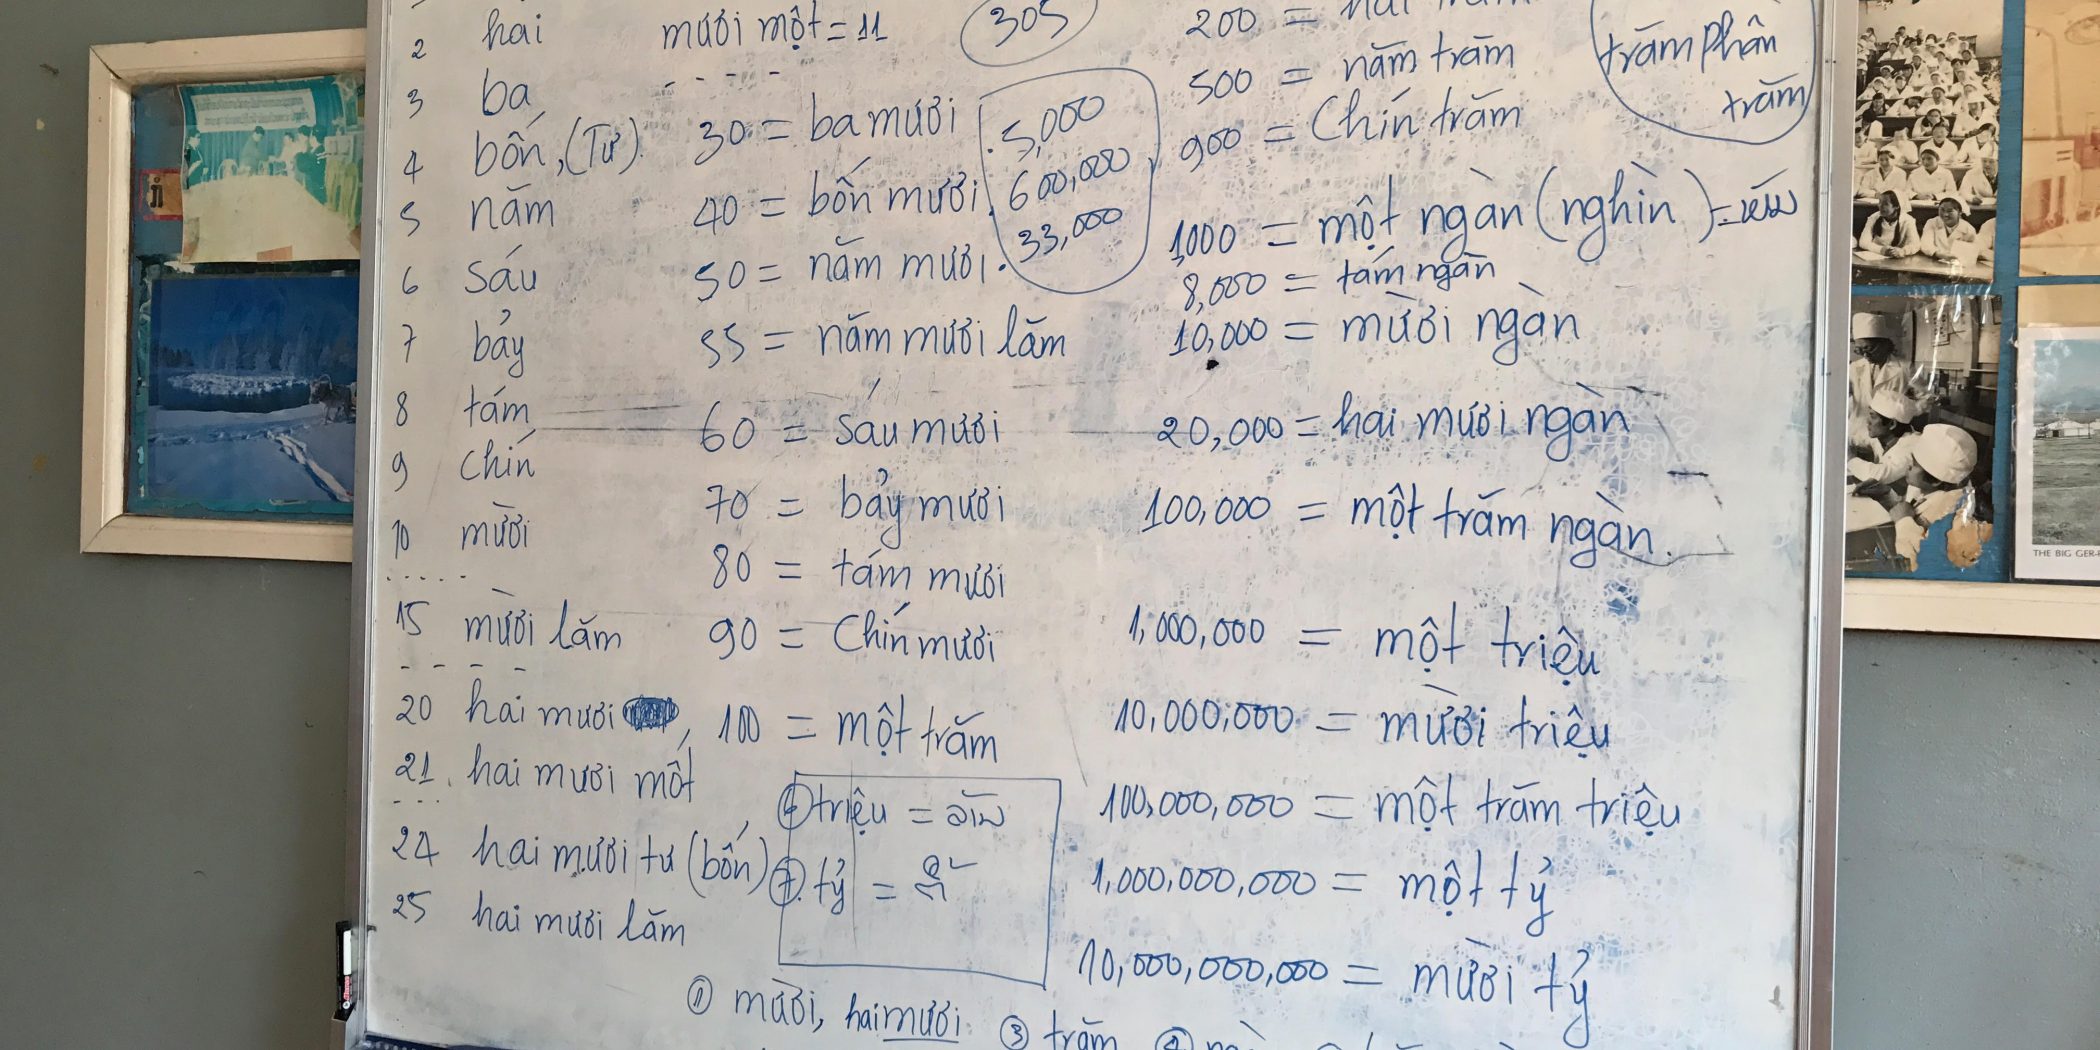 2 hai
3 ba
4 bốn, (Tư).
5 năm
6 sáu
7 bảy
8 tám
9 chín
10 mười
.....
15 mười lăm
- - - -
20 hai mươi
21. hai mươi mốt
- - -
24 hai mươi tư (bốn)
25 hai mươi lăm
mười một = 11
- - - -
30 = ba mươi
40 = bốn mươi.
50 = năm mươi.
55 = năm mươi lăm
60 = sáu mươi
70 = bảy mươi
80 = tám mươi
90 = chín mươi
100 = một trăm
triệu = ລ້ານ
tỷ = ຕື້
① mười, hai mươi.
③ trăm
305
5,000
600,000
33,000
200 = hai trăm
500 = năm trăm
900 = Chín trăm
1,000 = một ngàn (nghìn) = ພັນ
8,000 = tám ngàn
10,000 = mười ngàn
20,000 = hai mươi ngàn
100,000 = một trăm ngàn.
1,000,000 = một triệu
10,000,000 = mười triệu
100,000,000 = một trăm triệu
1,000,000,000 = một tỷ
10,000,000,000 = mười tỷ
trăm phần
trăm
THE BIG GER-